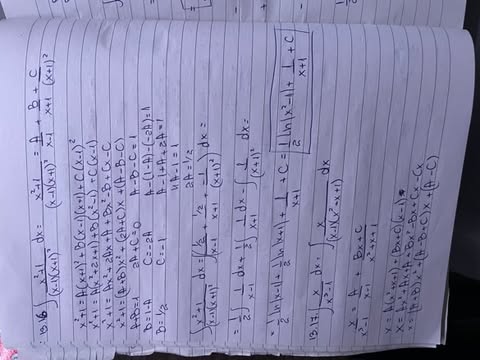 13.16 ∫ x²+1/(x-1)(x+1)² dx = x²+1/(x-1)(x+1)² = A/x-1 + B/x+1 + C/(x+1)²
x²+1 = A(x+1)² + B(x-1)(x+1) + C(x-1)
x²+1 = A(x²+2x+1) + B(x²-1) + C(x-1)
x²+1 = Ax² + 2Ax + A + Bx² - B + Cx - C
x²+1 = (A+B)x² + (2A+C)x + (A-B-C)
A+B=1 2A+C=0 A-B-C=1
B=1-A C=-2A A-(1-A)-(-2A)=1
B=1/2 C=-1 A-1+A+2A=1
4A-1=1
2A=1/2
∫ x²+1/(x-1)(x+1)² dx = ∫(1/2/x-1 + 1/2/x+1 + -1/(x+1)²) dx =
= 1/2 ∫ 1/x-1 dx + 1/2 ∫ 1/x+1 dx - ∫ 1/(x+1)² =
= 1/2 ln|x-1| + 1/2 ln|x+1| + 1/x+1 + C = 1/2 ln|x²-1| + 1/x+1 + C
13.17. ∫ x/x³-1 dx = ∫ x/(x-1)(x²+x+1) dx
x/x³-1 = A/x-1 + Bx+C/x²+x+1
x = A(x²+x+1) + (Bx+C)(x-1)
x = Ax² + Ax + A + Bx² - Bx + Cx - Cx
x = (A+B)x² + (A-B+C)x + (A-C)